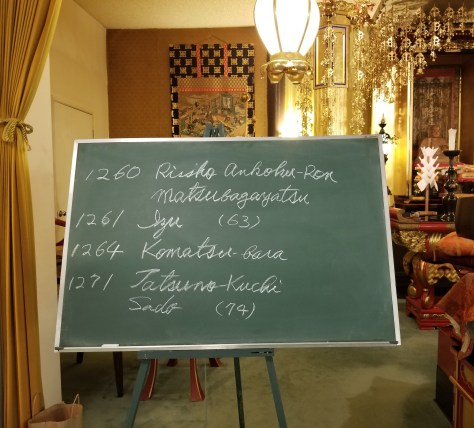 1260 Rissho Ankoku-Ron
Matsubagayatsu
1261 Izu (63)
1264 Komatsu-bara
1271 Tatsuno-Kuchi
Sado (74)